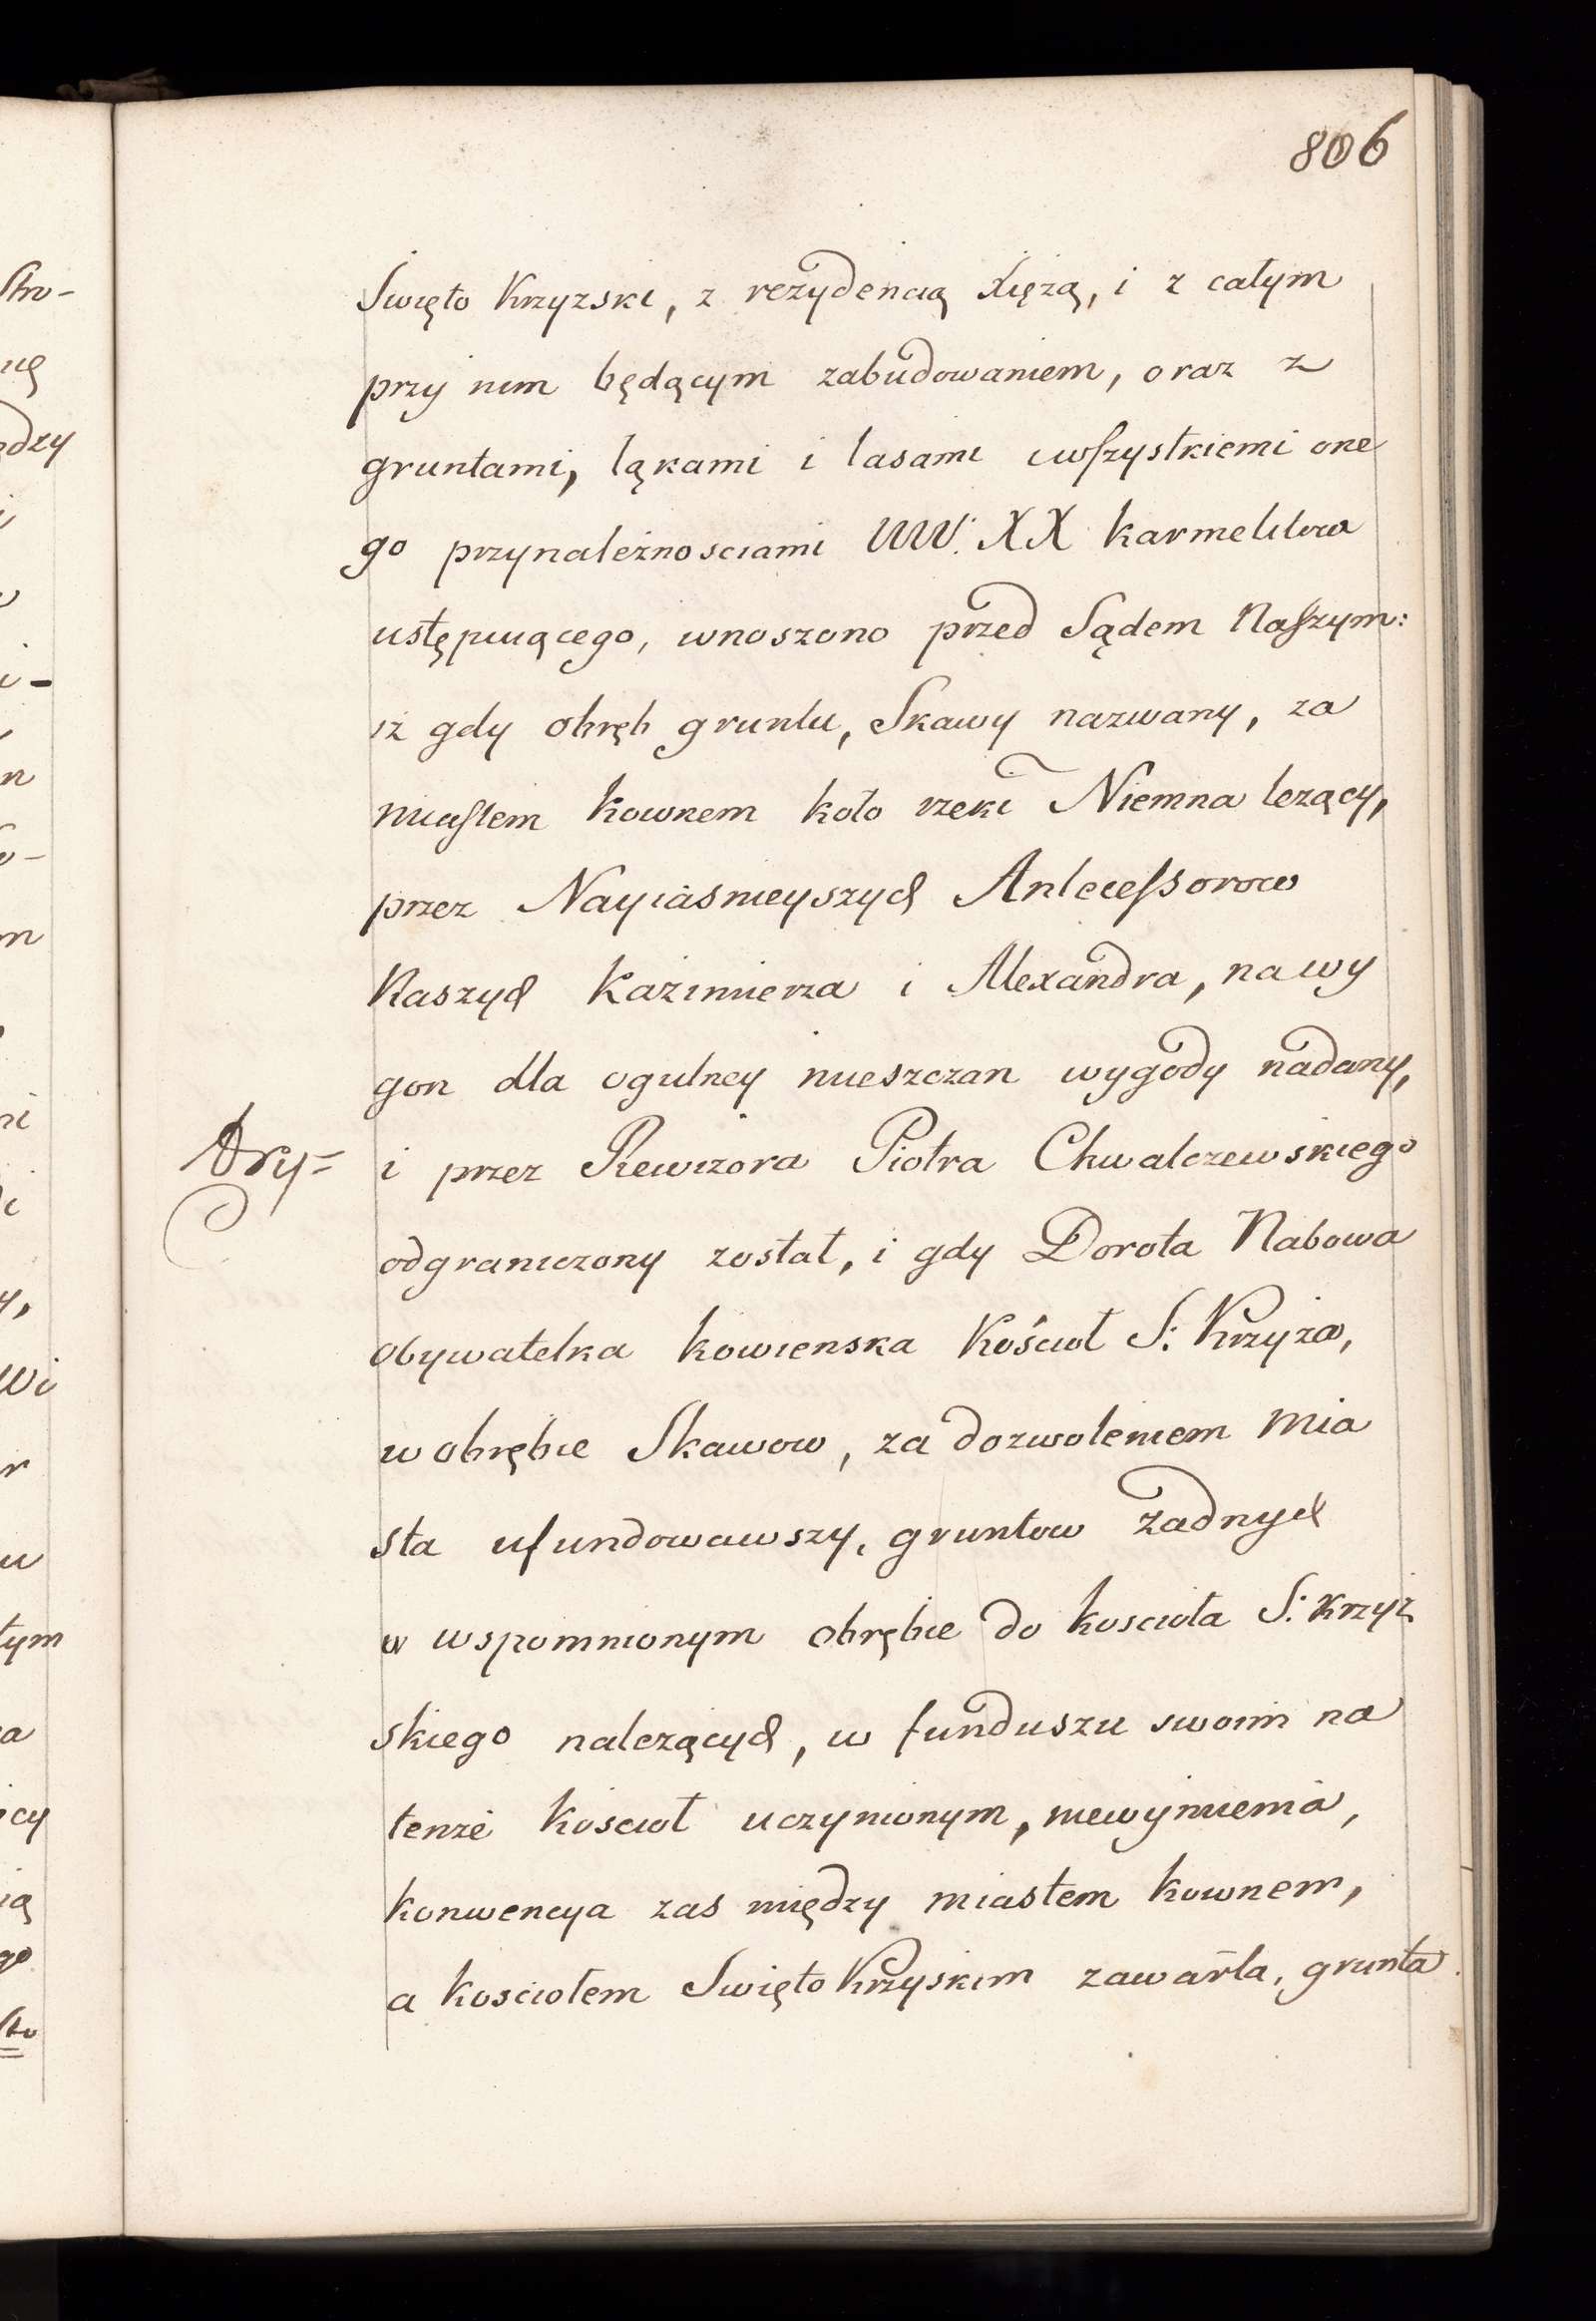 806
Swięto Krzyzski, z rezydencią Xięzą, i z całym
przy nim będącym zabudowaniem, oraz z
gruntami, łąkami i lasami i wszystkiemi one
go przynależnosciami WW. XX Karmelitow
ustępuiącego, wnoszono przed Sądem Naszym:
iż gdy obręb gruntu, Skawy nazwany, za
miastem Kownem koło rzeki Niemna leżący,
przez Nayiasnieyszych Antecessorow
Naszych Kazimierza i Alexandra, na wy
gon dla ogulney mieszczan wygody nadany,
i przez Rewizora Piotra Chwalczewskiego
odgraniczony został, i gdy Dorota Nabowa
obywatelka kowienska Kościoł S: Krzyża,
w obrębie Skawow, za dozwoleniem Mia
sta ufundowawszy, gruntow żadnych
w wspomnionym obrębie do koscioła S: Krzyż
skiego należących, w funduszu swoim na
tenże Koscioł uczynionym, niewymienia,
Konwencya zas między miastem Kownem,
a Kosciołem Swięto Krzyskim zawarła, grunta